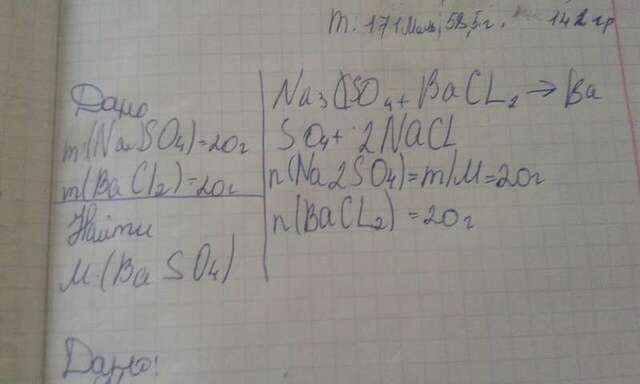 m: 171 Моль, 58,5 г. 142 гр
Дано
m(Na2SO4)=20г
m(BaCl2)=20г
Найти
M(BaSO4)
Na2SO4+BaCL2→Ba
SO4+2NaCl
n(Na2SO4)=m/M=20г
n(BaCL2)=20г
Дано: